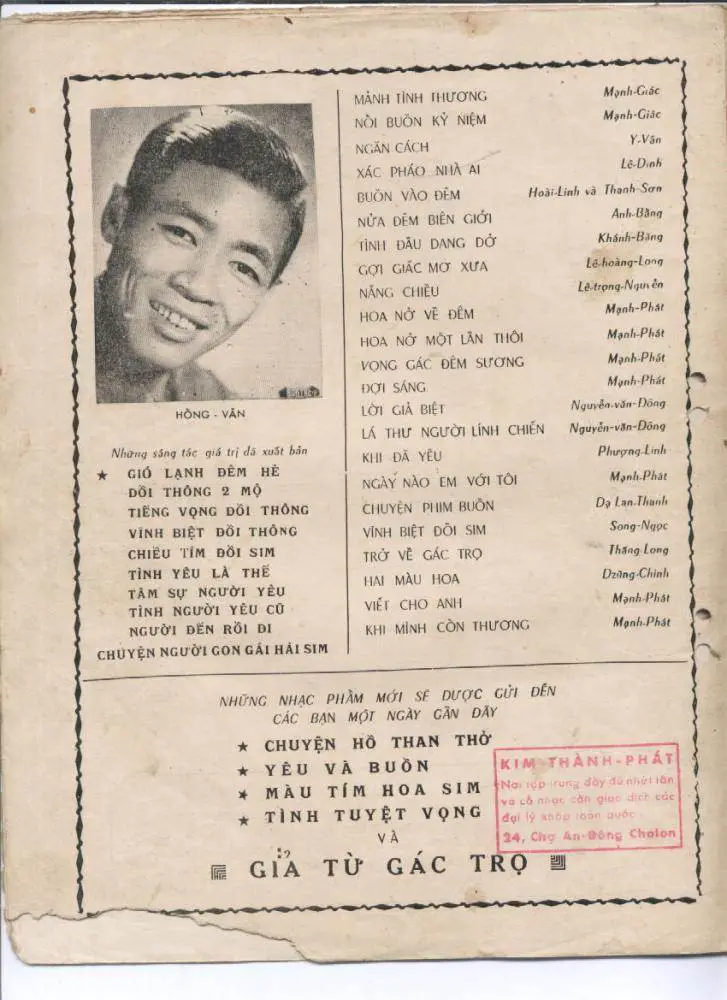 HỒNG - VÂN
Những sáng tác giá trị đã xuất bản
★ GIÓ LẠNH ĐÊM HÈ
ĐỒI THÔNG 2 MỘ
TIẾNG VỌNG ĐỒI THÔNG
VĨNH BIỆT ĐỒI THÔNG
CHIỀU TÍM ĐỒI SIM
TÌNH YÊU LÀ THẾ
TÂM SỰ NGƯỜI YÊU
TÌNH NGƯỜI YÊU CŨ
NGƯỜI ĐẾN RỒI ĐI
CHUYỆN NGƯỜI CON GÁI HÁI SIM
MẢNH TÌNH THƯƠNG Mạnh-Giác
NỖI BUỒN KỶ NIỆM Mạnh-Giác
NGĂN CÁCH Y-Vân
XÁC PHÁO NHÀ AI Lê-Dinh
BUỒN VÀO ĐÊM Hoài-Linh và Thanh-Sơn
NỬA ĐÊM BIÊN GIỚI Anh-Bằng
TÌNH ĐẦU DANG DỞ Khánh-Băng
GỢI GIẤC MƠ XƯA Lê-hoàng-Long
NẮNG CHIỀU Lê-trọng-Nguyễn
HOA NỞ VỀ ĐÊM Mạnh-Phát
HOA NỞ MỘT LẦN THÔI Mạnh-Phát
VỌNG GÁC ĐÊM SƯƠNG Mạnh-Phát
ĐỢI SÁNG Mạnh-Phát
LỜI GIÃ BIỆT Nguyễn-văn-Đông
LÁ THƯ NGƯỜI LÍNH CHIẾN Nguyễn-văn-Đông
KHI ĐÃ YÊU Phượng-Linh
NGÀY NÀO EM VỚI TÔI Mạnh-Phát
CHUYỆN PHIM BUỒN Dạ Lan-Thanh
VĨNH BIỆT ĐỒI SIM Song-Ngọc
TRỞ VỀ GÁC TRỌ Thăng-Long
HAI MÀU HOA Dzũng-Chinh
VIẾT CHO ANH Mạnh-Phát
KHI MÌNH CÒN THƯƠNG Mạnh-Phát
NHỮNG NHẠC PHẨM MỚI SẼ ĐƯỢC GỬI ĐẾN
CÁC BẠN MỘT NGÀY GẦN ĐÂY
★ CHUYỆN HỒ THAN THỞ
★ YÊU VÀ BUỒN
★ MÀU TÍM HOA SIM
★ TÌNH TUYỆT VỌNG
VÀ
GIẢ TỪ GÁC TRỌ
KIM THÀNH-PHÁT
Nơi tập trung đầy đủ nhứt tân
và cổ nhạc cần giao dịch các
đại lý khắp toàn quốc
24, Chợ An-Đông Cholon